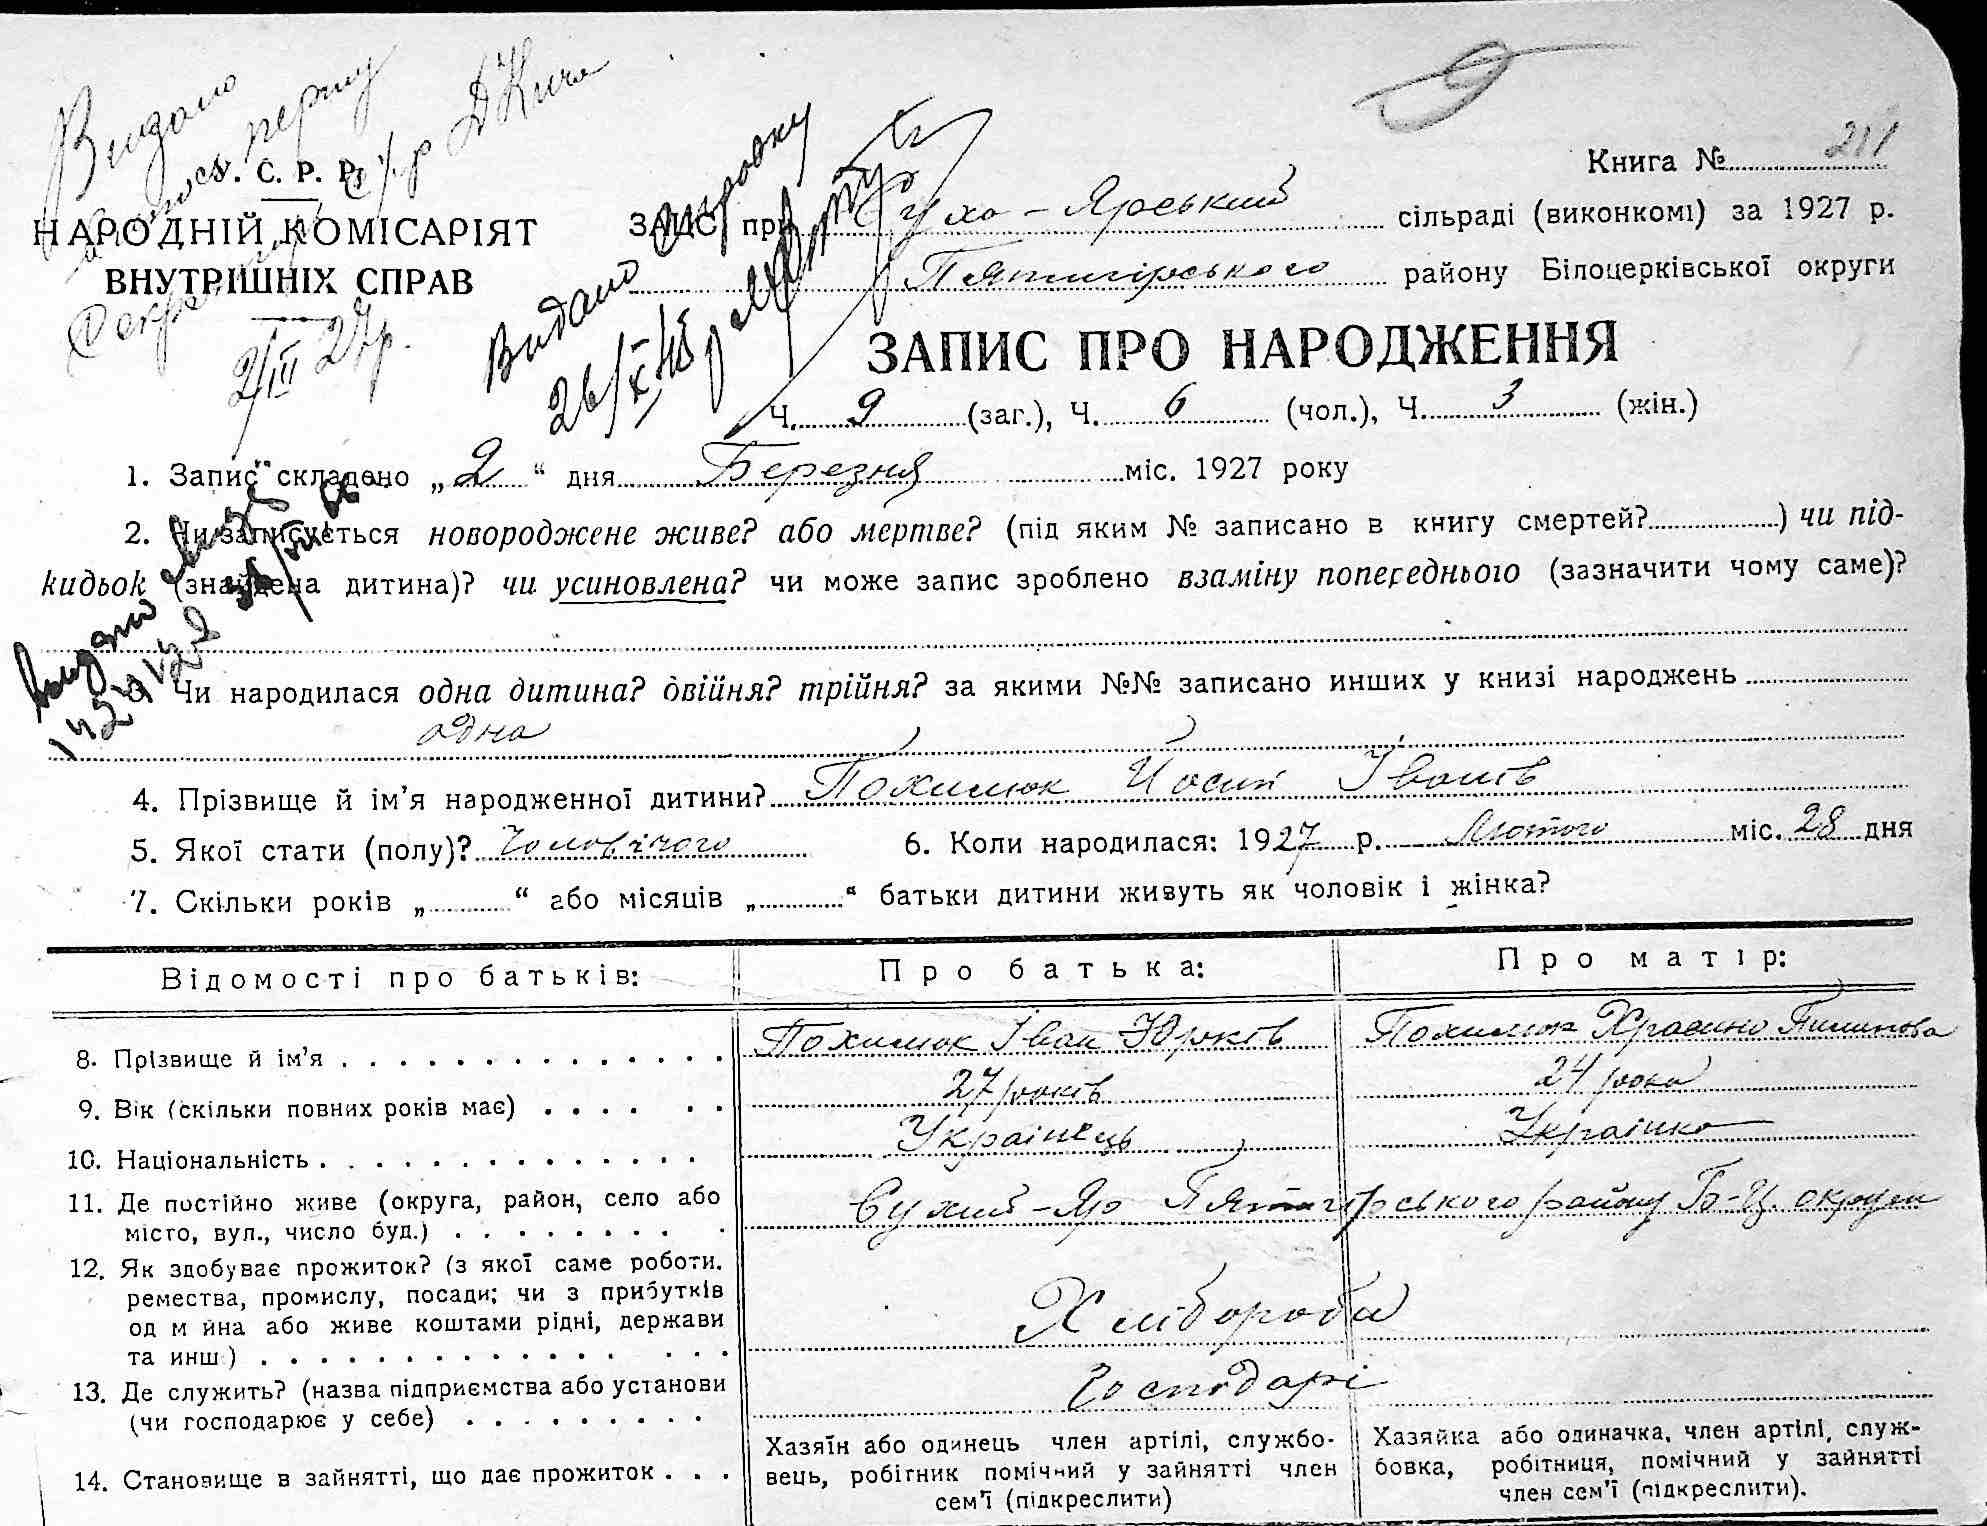 Видано
першу
У. С. Р. Р.
НАРОДНІЙ КОМІСАРІЯТ
ВНУТРІШНІХ СПРАВ
2/III 27р.
Видано
26/X 45р
Книга №
ЗАПИС при Сухо-Ярський сільраді (виконкомі) за 1927 р.
Пятигірського району Білоцерківської округи
ЗАПИС ПРО НАРОДЖЕННЯ
Ч. 9 (заг.), Ч. 6 (чол.), Ч. 3 (жін.)
1. Запис складено „2“ дня Березня міс. 1927 року
2. Чи записується новороджене живе? або мертве? (під яким № записано в книгу смертей?) чи під-
кидьок (знайдена дитина)? чи усиновлена? чи може запис зроблено взаміну попереднього (зазначити чому саме)?
Видано
Чи народилася одна дитина? двійня? трійня? за якими №№ записано инших у книзі народжень
одна
4. Прізвище й ім’я народженної дитини? Похилюк Йосип Іванів
5. Якої стати (полу)? Чоловічого 6. Коли народилася: 1927 р. Лютого міс. 28 дня
7. Скільки років „ “ або місяців „ “ батьки дитини живуть як чоловік і жінка?
Відомості про батьків: Про батька: Про матір:
8. Прізвище й ім’я Похилюк Іван Юрків Похилюк Пилипова
9. Вік (скільки повних років має) 27 років 24 роки
10. Національність Українець Українка
11. Де постійно живе (округа, район, село або
місто, вул., число буд.) Сухий-Яр Пятигірського району Б-Ц. округи
12. Як здобуває прожиток? (з якої саме роботи.
ремества, промислу, посади; чи з прибутків
од м йна або живе коштами рідні, держави
та инш) Хлібороби
13. Де служить? (назва підприємства або установи
(чи господарює у себе) Господарі
14. Становище в зайнятті, що дає прожиток
Хазяїн або одинець член артілі, службо-
вець, робітник помічний у зайнятті член
сем’ї (підкреслити)
Хазяйка або одиначка, член артілі, служ-
бовка, робітниця, помічний у зайнятті
член сем’ї (підкреслити).